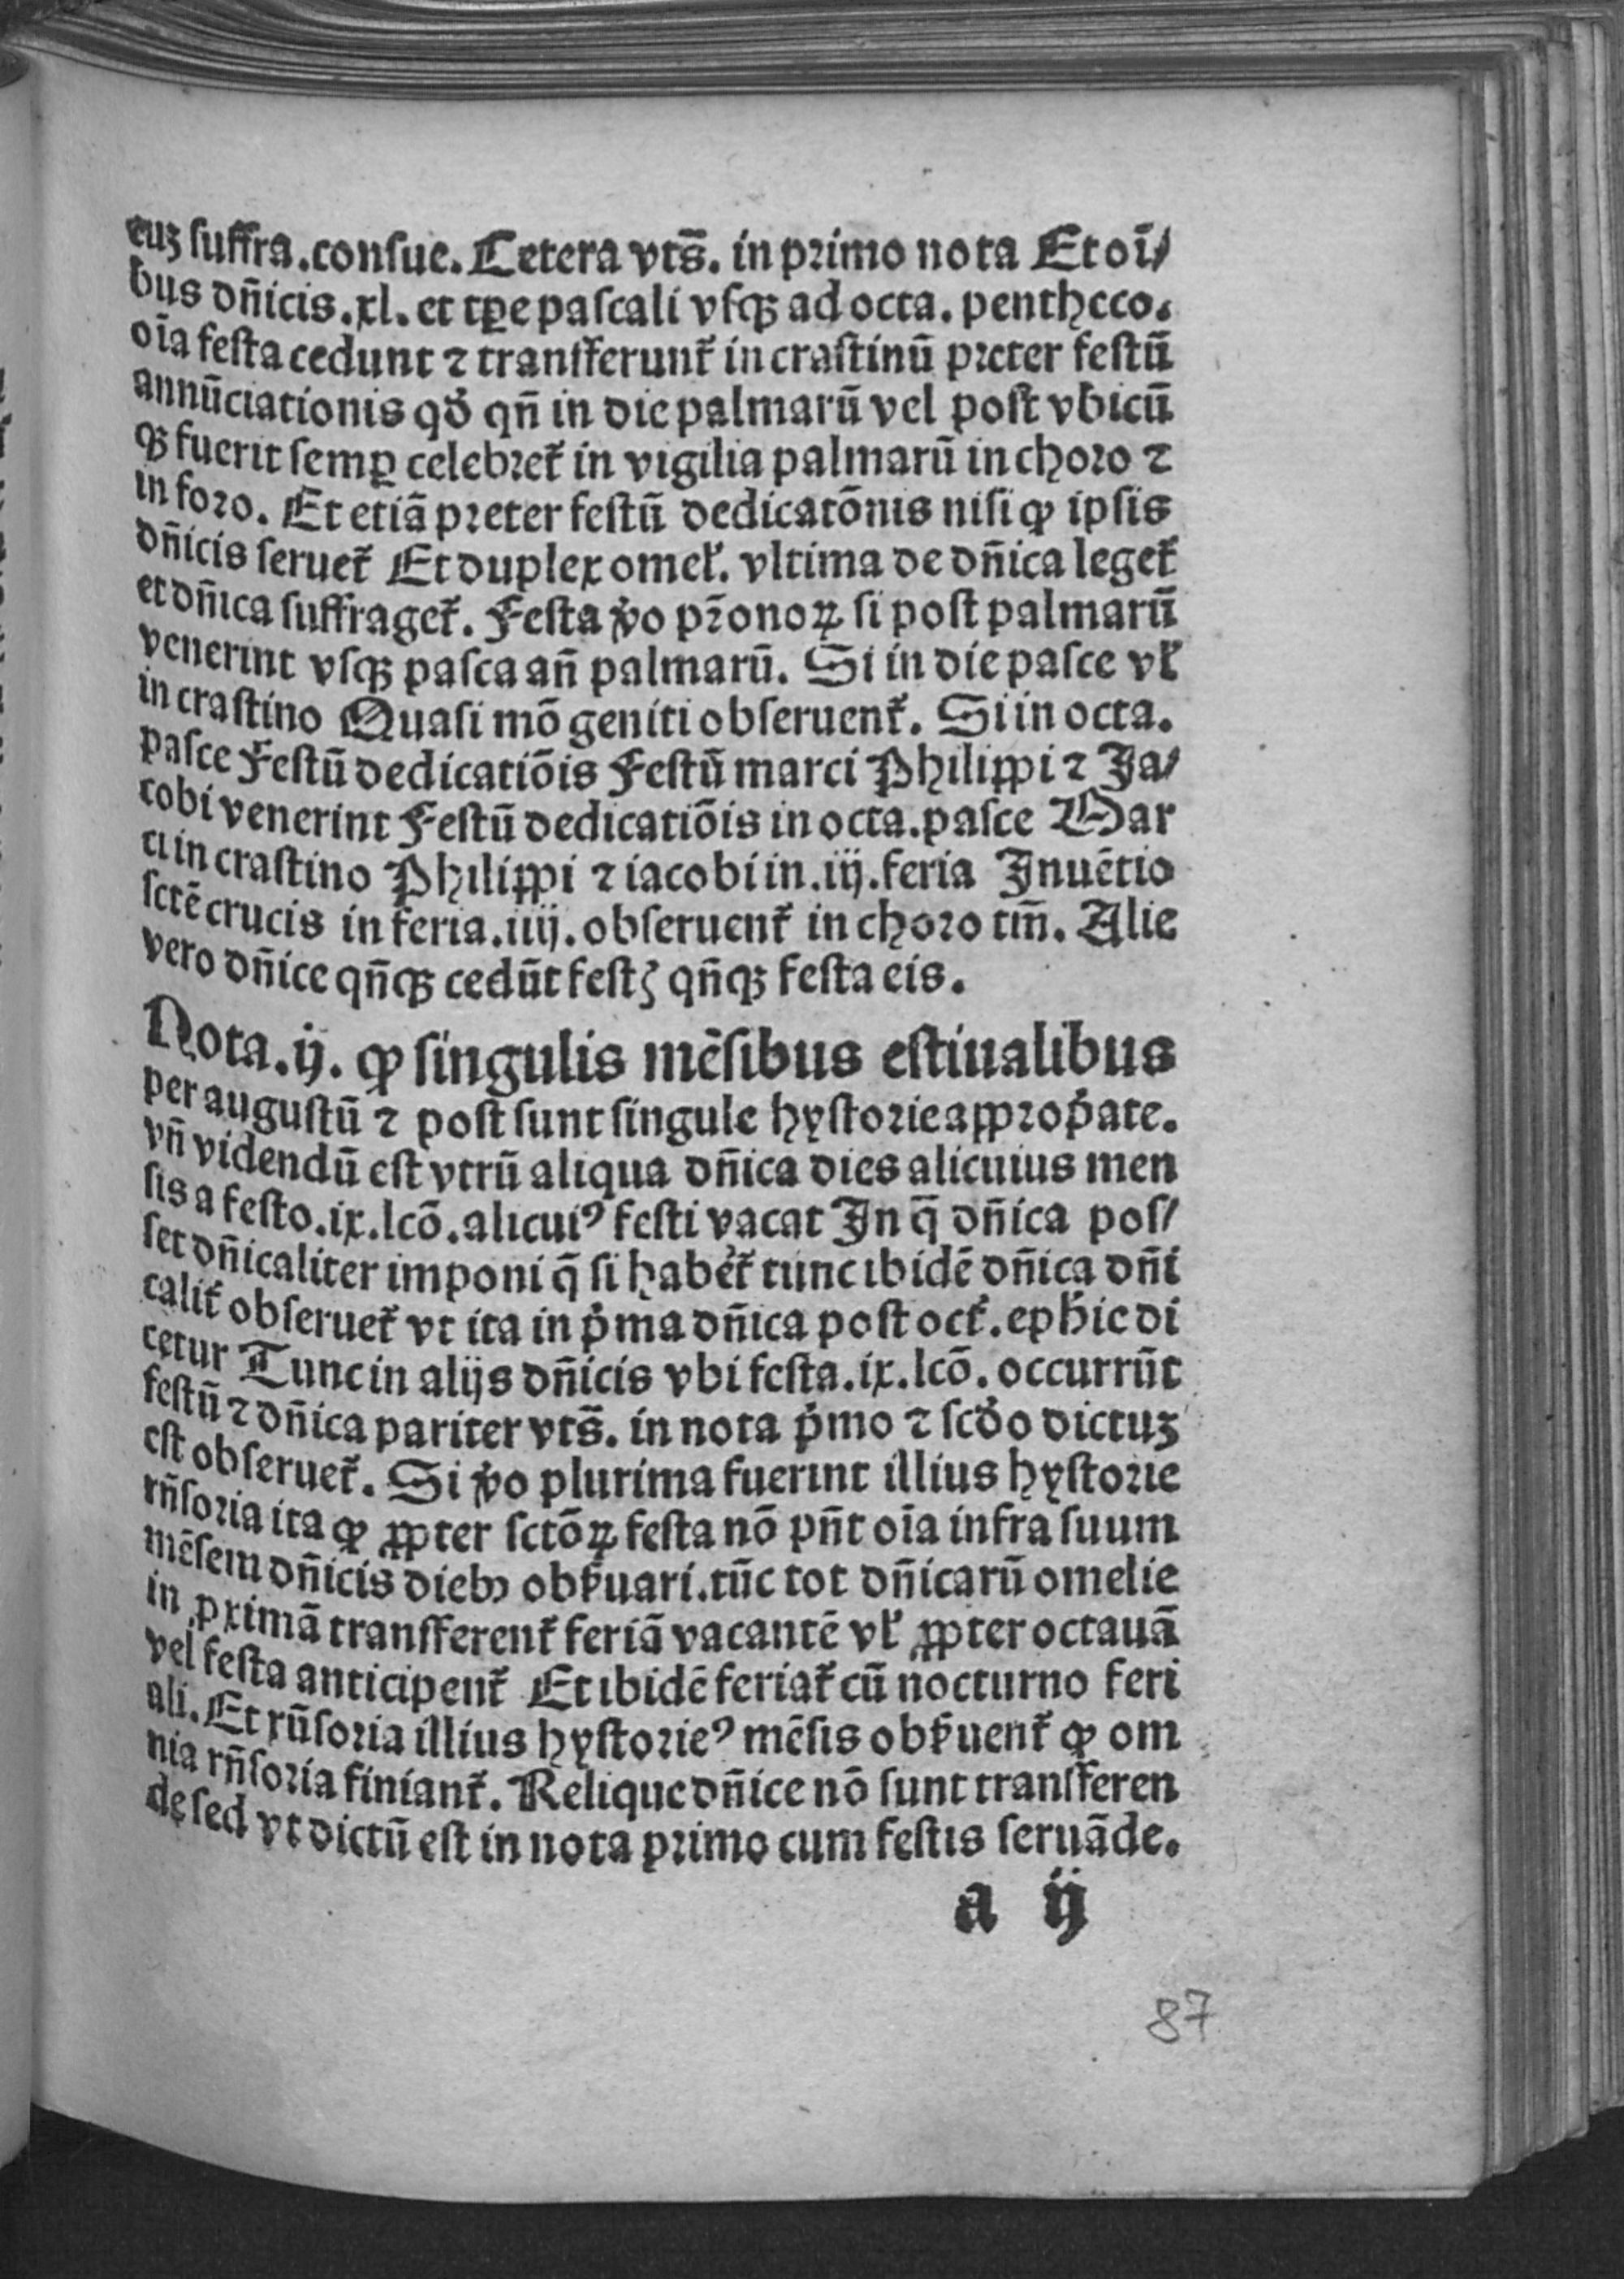 cuꝫ ſuffra.conſue. Cetera vts̄. in primo nota Et oī⸗
bus dn̄icis.xl. et tꝑe paſcali vſqꝫ ad octa. pentheco.
oīa feſta cedunt ⁊ tranſferunt᷑ in craſtinū preter feſtū
annūciationis qd̓ qn̄ in die palmarū vel poſt vbicū
qꝫ fuerit ſemꝑ celebret᷑ in vigilia palmarū in choro ⁊
in foro. Et etiā preter feſtū dedicatōnis niſi ꝙ ipſis
dn̄icis ſeruet᷑ Et duplex omel᷑. vltima de dn̄ica leget᷑
et dn̄ica ſuffraget᷑. Feſta v̓o pr̄onoꝝ ſi poſt palmarū
venerint vſqꝫ paſca an̄ palmarū. Si in die paſce vl᷑
in craſtino Quaſi mō geniti obſeruent᷑. Si in octa.
paſce Feſtū dedicatiōis Feſtū marci Philippi ⁊ Ja⸗
cobi venerint Feſtū dedicatiōis in octa.paſce Mar
ci in craſtino Philippi ⁊ iacobi in.iij.feria Inuētio
ſctē crucis in feria.iiij.obſeruent᷑ in choro tm̄. Alie
vero dn̄ice qn̄qꝫ cedūt feſtꝭ qn̄qꝫ feſta eis.
Nota.ij. ꝙ ſingulis mēſibus eſtiualibus
per auguſtū ⁊ poſt ſunt ſingule hyſtorie approp̓ate.
vn̄ videndū eſt vtrū aliqua dn̄ica dies alicuius men
ſis a feſto.ix.lcō.alicuiꝰ feſti vacat In q̄ dn̄ica poſ⸗
ſet dn̄icaliter imponi q̄ ſi haber̓t᷑ tunc ibidē dn̄ica dn̄i
calit᷑ obſeruet᷑ vt ita in p̓ma dn̄ica poſt oct᷑.eph̓ic di
cetur Tunc in alijs dn̄icis vbi feſta.ix.lcō.occurrūt
feſtū ⁊ dn̄ica pariter vts̄. in nota p̓mo ⁊ ſcd̓o dictuꝫ
eſt obſeruet᷑. Si v̓o plurima fuerint illius hyſtorie
rn̄ſoria ita ꝙ ꝓpter ſctōꝝ feſta nō pn̄t oīa infra ſuum
mēſem dn̄icis diebꝫ obẜuari.tūc tot dn̄icarū omelie
in ꝓximā tranſferent᷑ feriā vacantē vl᷑ ꝓpter octauā
vel feſta anticipent᷑ Et ibidē feriat᷑ cū nocturno feri
ali. Et rn̄ſoria illius hyſtorieꝰ mēſis obẜuent᷑ ꝙ om
nia rn̄ſoria finiant᷑. Relique dn̄ice nō ſunt tranſferen
de ſed vt dictū eſt in nota primo cum feſtis ſeruāde.
a ij
87